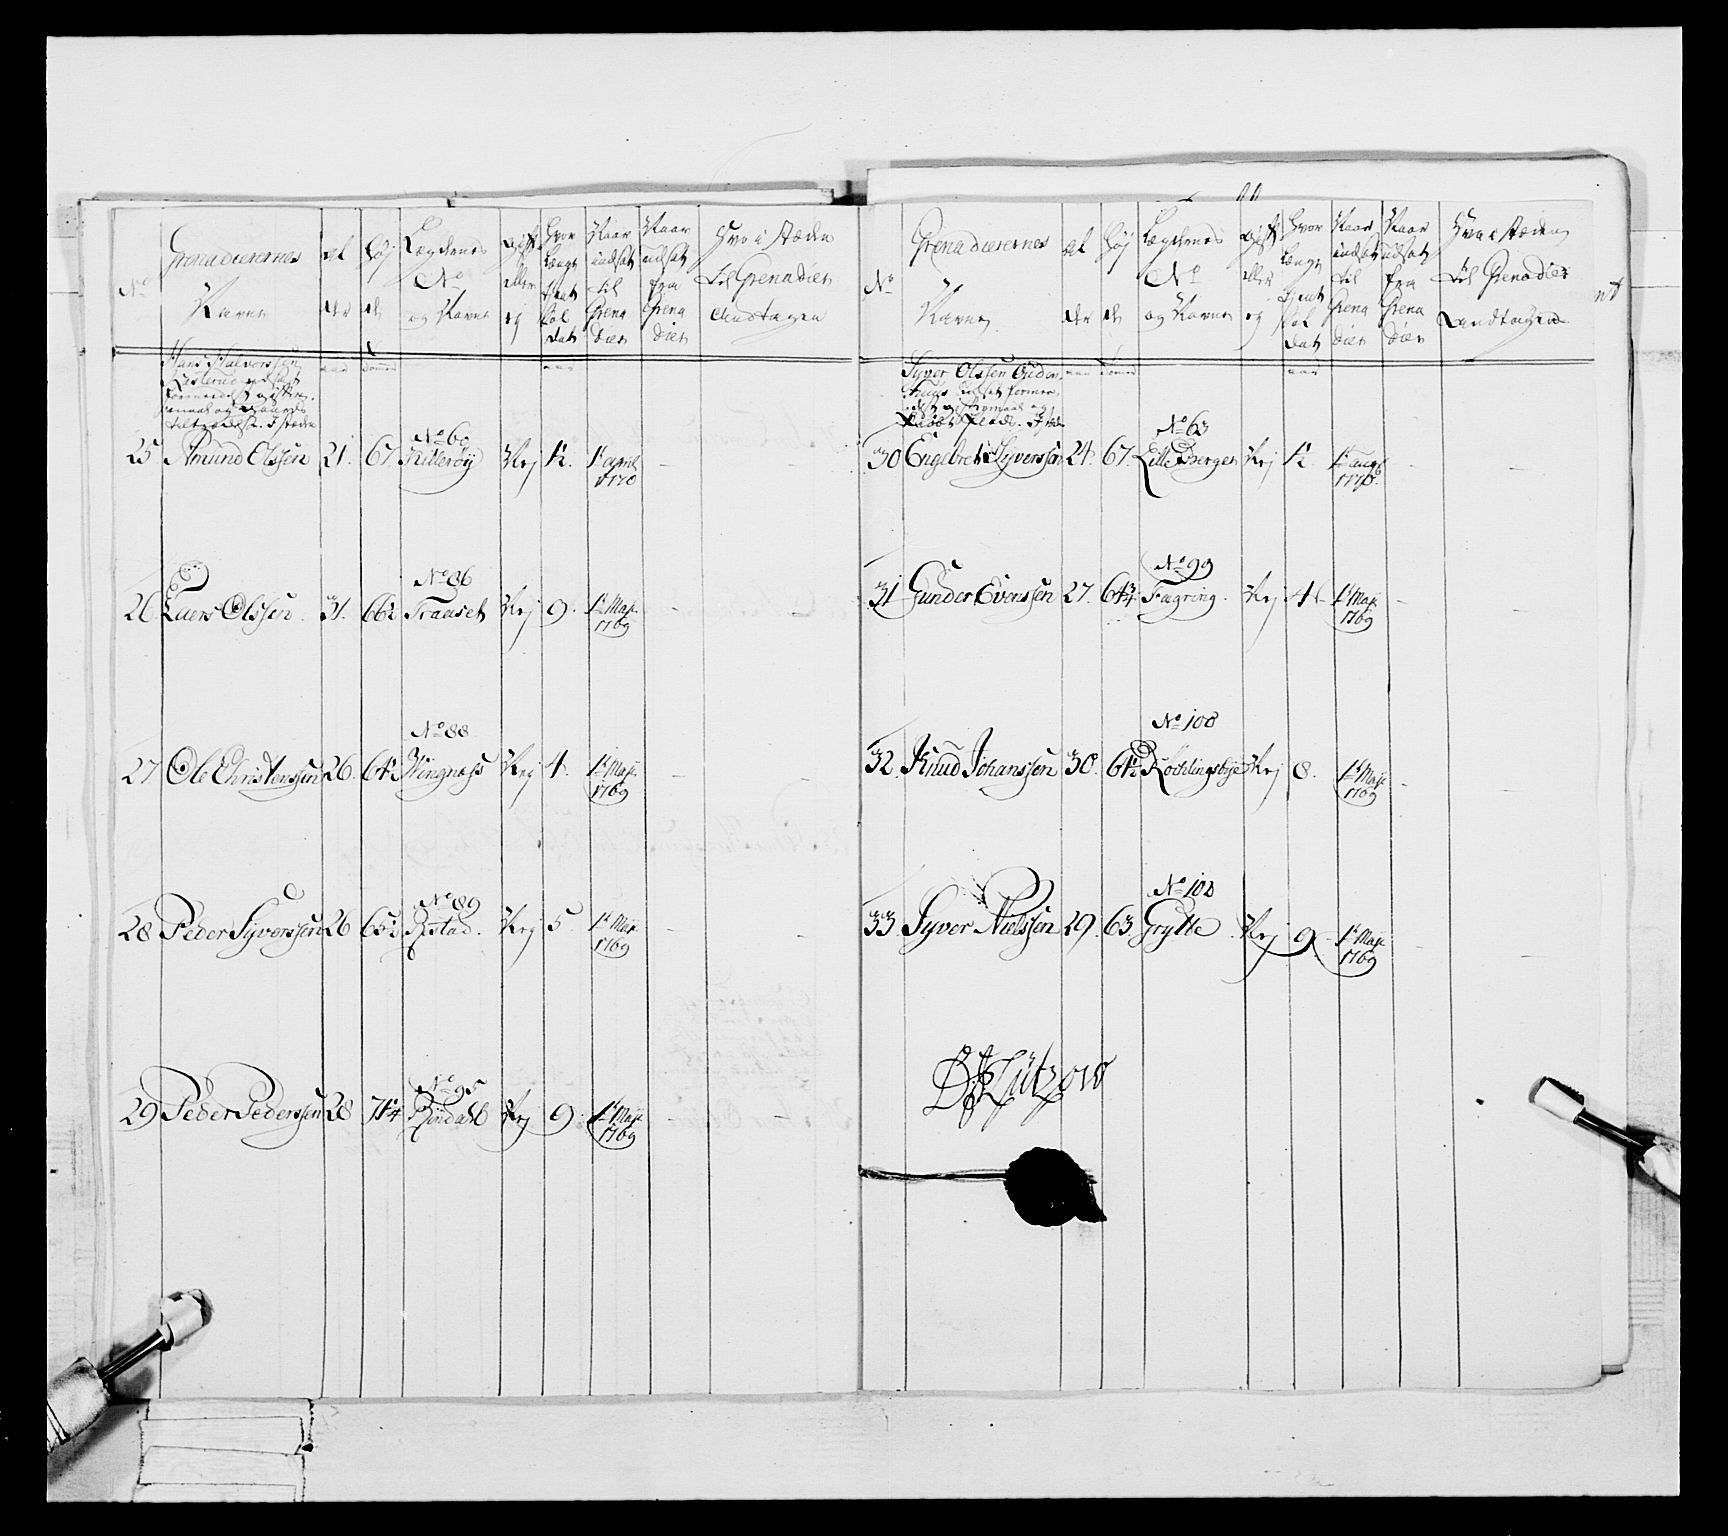 No
Grenadierernes
Navne
al
der
høj
de
Lægdernes
No
og Navne
gift
eller
ej
Hvor
længe
tient
sol
dat
Naar
indsat
til
Grena
dier
Naar
udsat
fra
Grena
dier
Hvo i stæden
til Grenadier
Andtagen
Hans Halvorssen
25 Amund Olssen 21. 67. No 60 Killerøy Nej 1/2. 1t april 1770
26 Laers Olssen 31. 66 1/2 No 86 Traaset Nej 9. 1t Maji 1769
27 Ole Christenssen 26. 64 1/2 No 88 Wingnæss Nej 4. 1t Maji 1769
28 Peder Syverssen 26 65 1/2 No 89 Røstad. Nej 5. 1t Maji 1769
29 Peder Pederssen 28 71 1/4 No 95 Ryndahl Nej 9. 1t Maji 1769
No
Grenadierernes
Navne
al
der
høj
de
Lægdernes
No
og Navne
gift
eller
ej
Hvor
længe
tient
sol
dat
Naar
indsat
til
Grena
dier
Naar
udsat
fra
Grena
dier
Hvo i stæden
til Grenadier
Andtagen
Syver Olssen
30 Engebret Syverssen 24. 67. No 63 Lille Berger Nej 1/2 1770.
31 Gunder Evenssen 27. 64 3/4 No 99 Fagring. Nej 4 1t Maji 1769
32 Knud Johanssen 30. 64 1/2 No 100 Kochlingsbye Nej 8. 1t Maji 1769
33 Syver Nielssen 29. 63 Grytte Nej 9 1t Maji 1769
Lützow